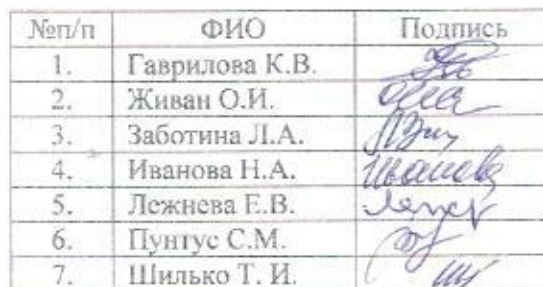 №п/п ФИО Подпись
1. Гаврилова К.В.
2. Живан О.И.
3. Заботина Л.А.
4. Иванова Н.А. Иванова
5. Лежнева Е.В.
6. Пунтус С.М.
7. Шилько Т. И.